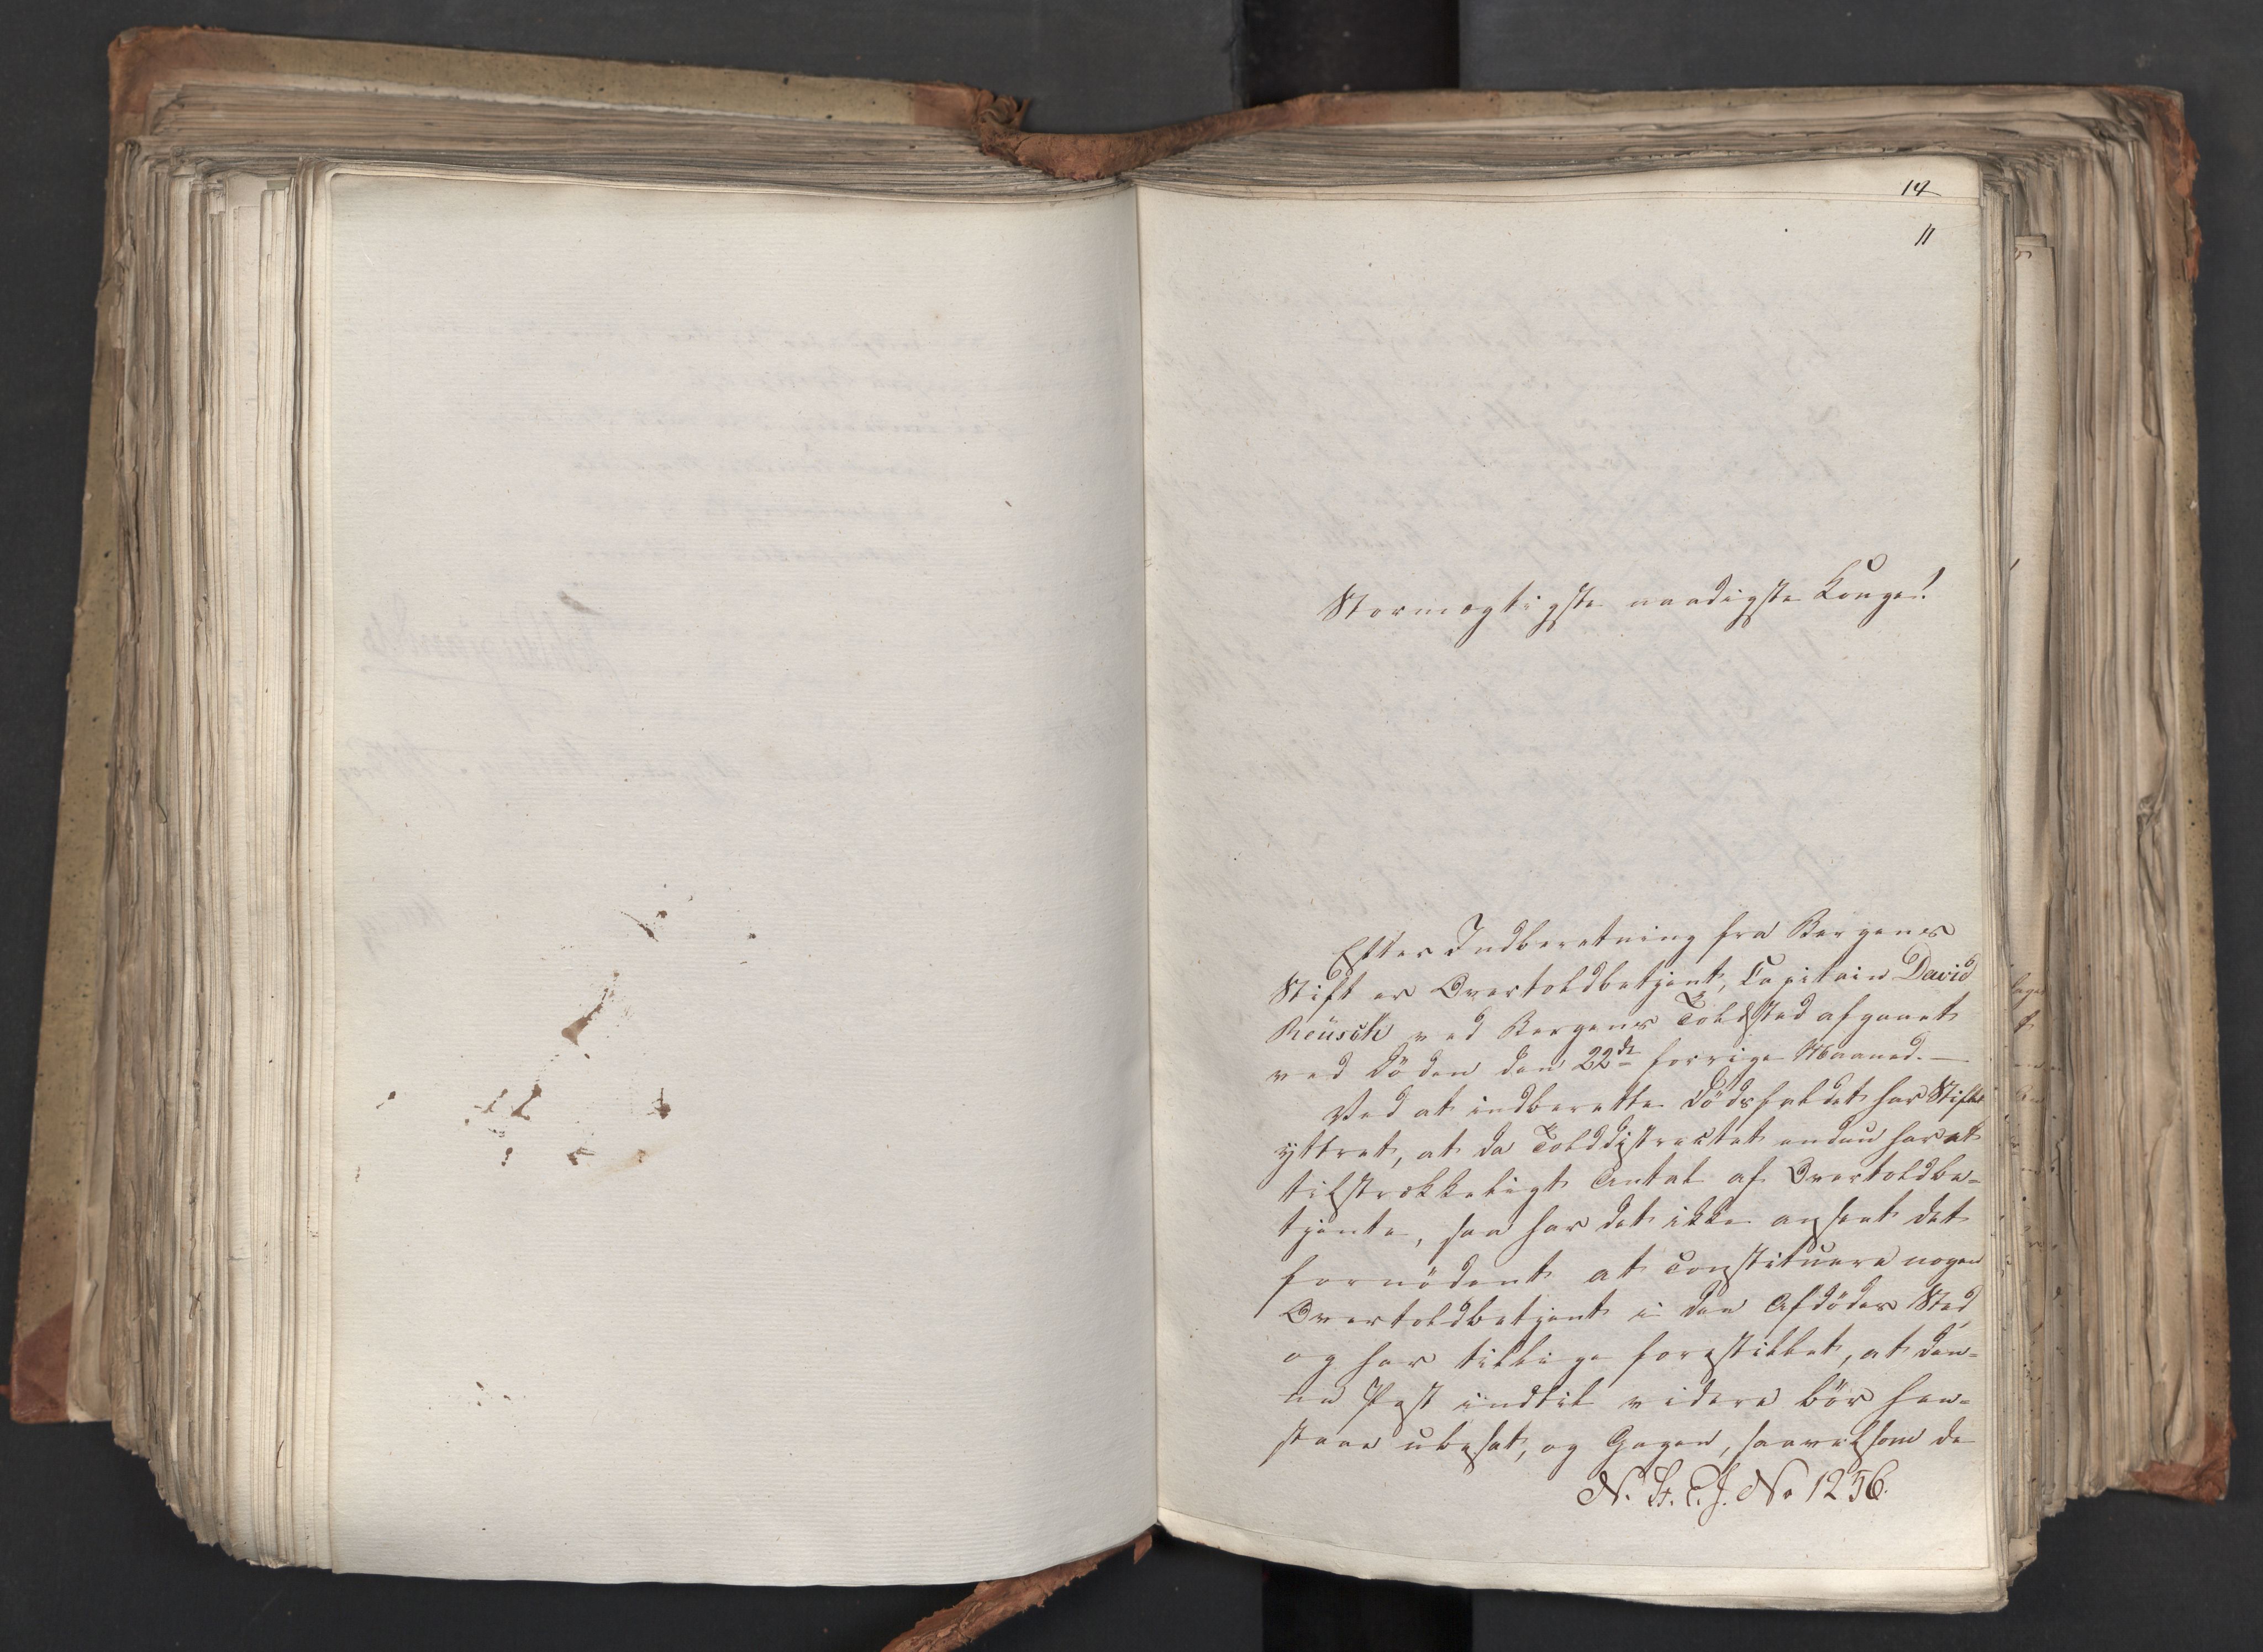 14
11
Stormægtigste naadigste Konge!
Efter Indberetning fra Bergens
Stift er Overtoldbetjent, Capitain David
Reüsch ved Bergens Toldsted afgaaet
ved Döden den 22de forrige Maaned. —
Ved at indberette Dödsfaldet har Stiftet
yttret, at da Tolddistrictet endnu har et
tilstrækkeligt Antal af Overtoldbe-
tjente, saa har det ikke anseet det
fornödent at constituere nogen
Overtoldbetjent i den Afdödes Sted,
og har tillige forestillet, at den-
ne Post indtil videre bör hen-
staae ubesat, og Gagen, saavelsom de
N. St. C. J. No 1256.